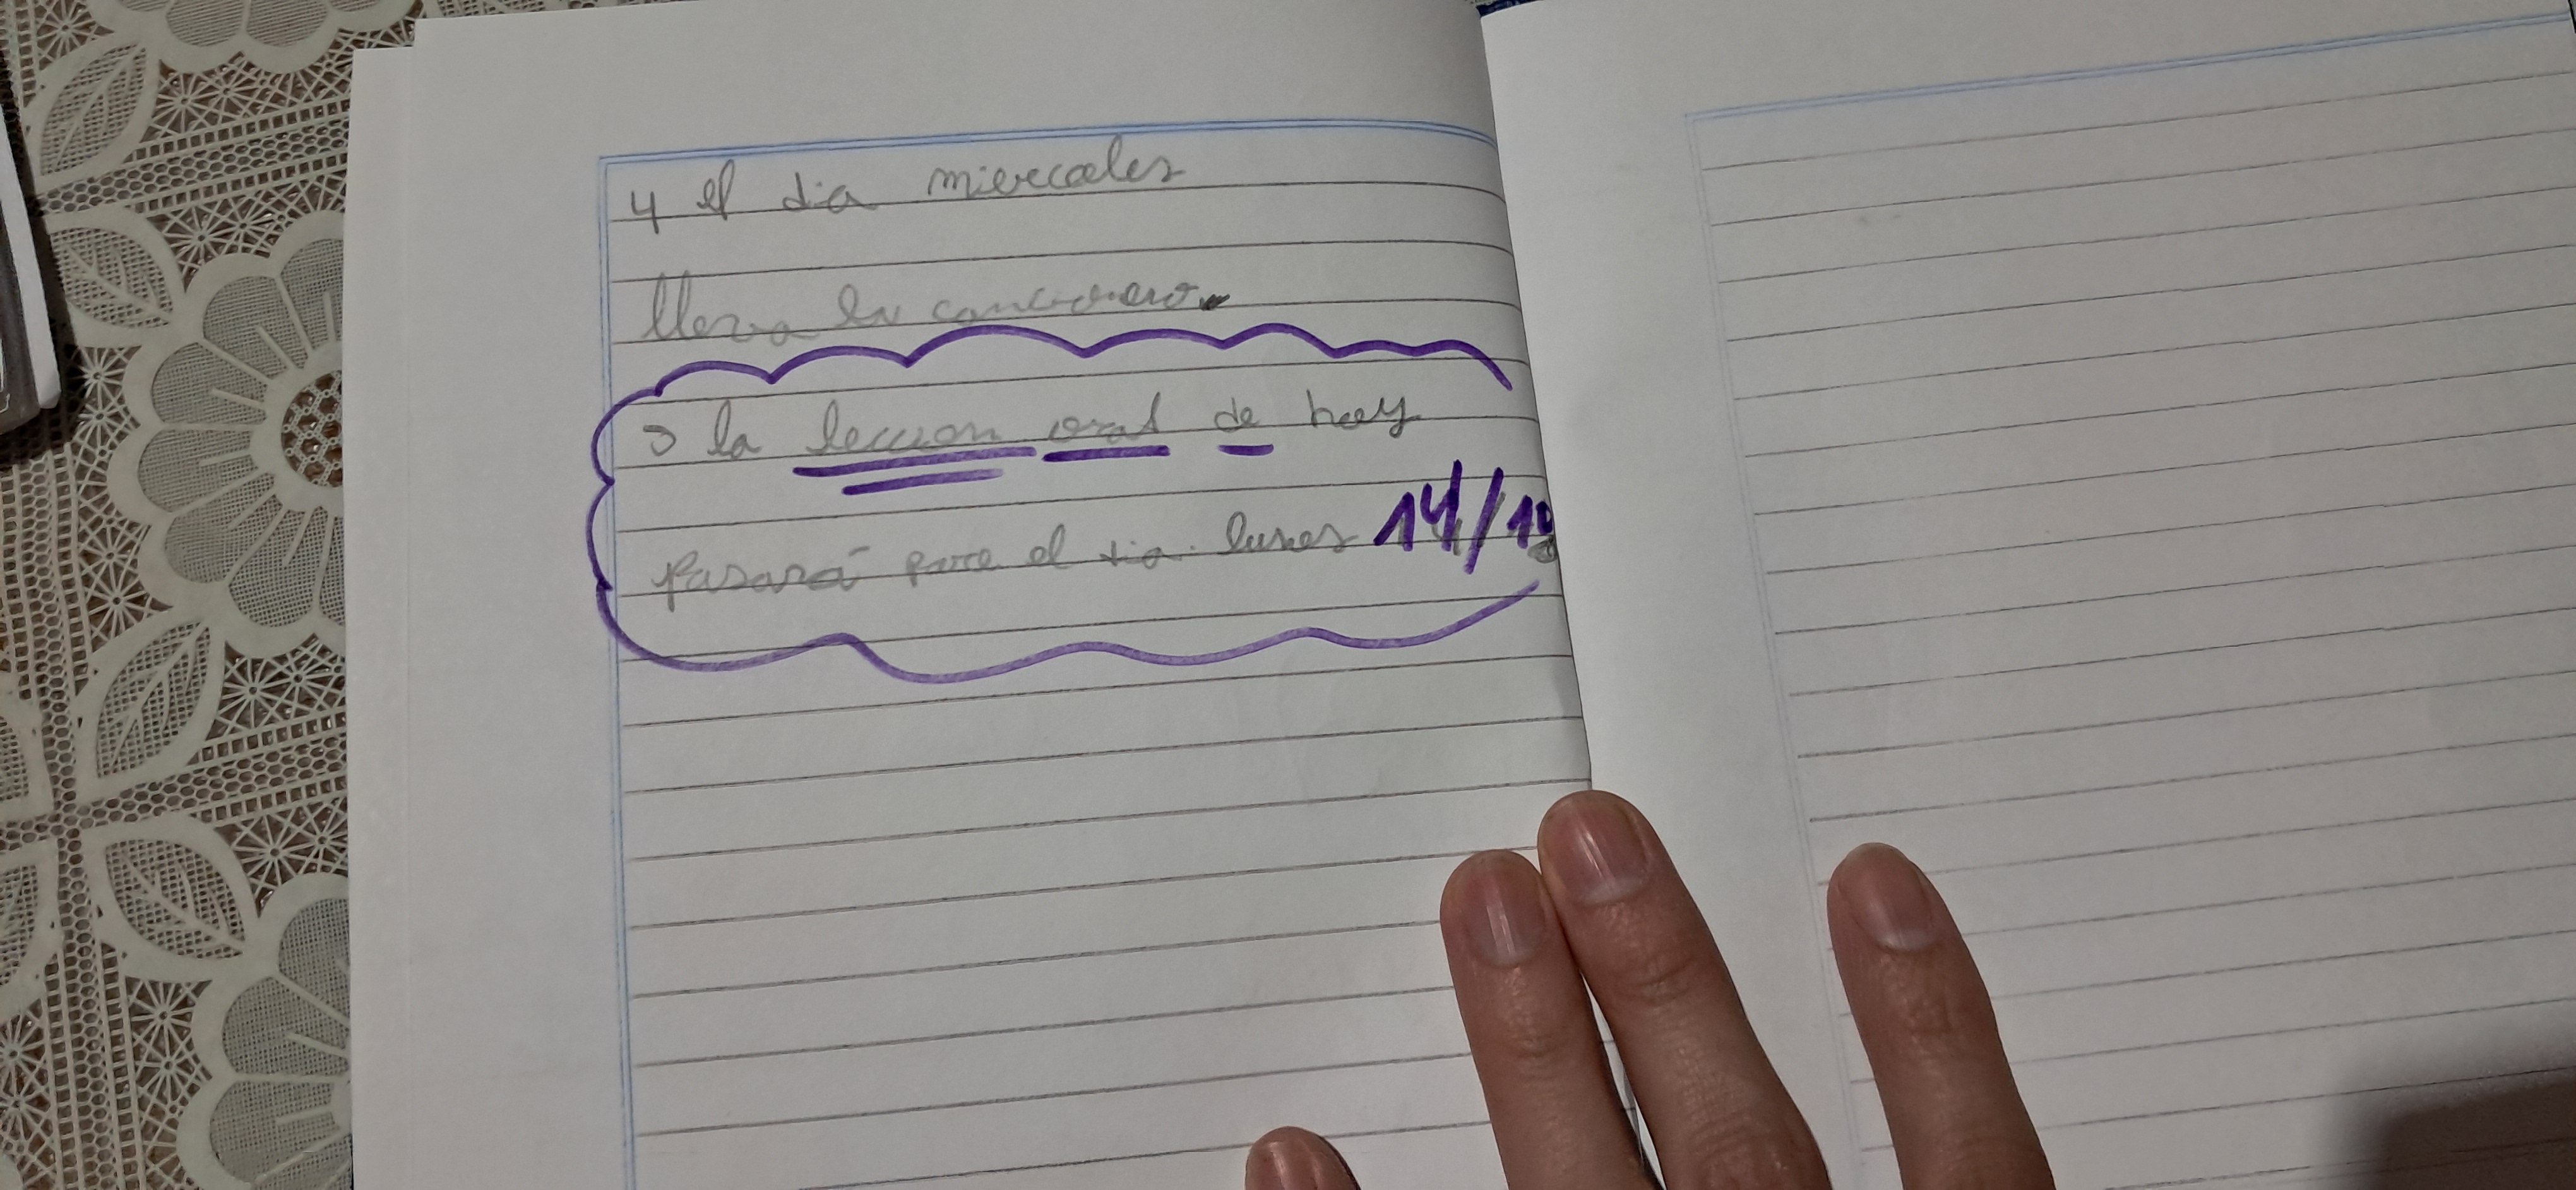 y el dia miercoles
lleva la cancionero.
la leccion oral de hoy
pasará para el dia lunes 14/10